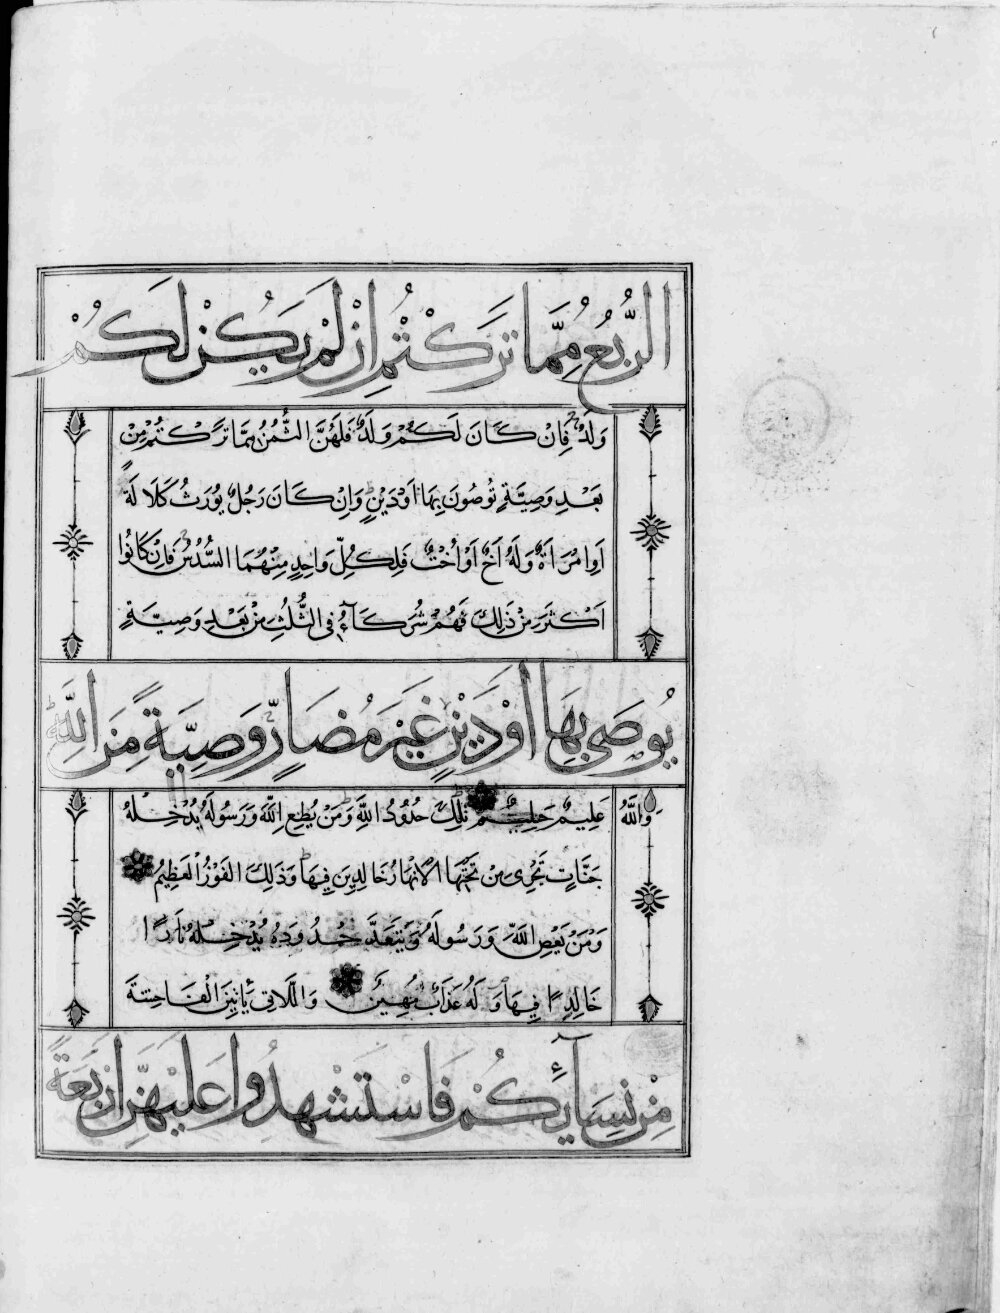 الرُّبُعُ مِمَّا تَرَكْتُمْ اِنْ لَمْ يَكُنْ لَكُمْ
وَلَدٌ فَاِنْ كَانَ لَكُمْ وَلَدٌ فَلَهُنَّ الثُّمُنُ مِمَّا تَرَكْتُمْ مِنْ
بَعْدِ وَصِيَّةٍ تُوصُونَ بِهَا اَوْ دَيْنٍ وَاِنْ كَانَ رَجُلٌ يُورَثُ كَلَالَةً
اَوِ امْرَاَةٌ وَلَهُ اَخٌ اَوْ اُخْتٌ فَلِكُلِّ وَاحِدٍ مِنْهُمَا السُّدُسُ فَاِنْ كَانُوا
اَكْثَرَ مِنْ ذَلِكَ فَهُمْ شُرَكَآءُ فِى الثُّلُثِ مِنْ بَعْدِ وَصِيَّةٍ
يُوصَى بِهَا اَوْ دَيْنٍ غَيْرَ مُضَارٍّ وَصِيَّةً مِنَ اللَّهِ
وَاللَّهُ عَلِيمٌ حَلِيمٌ تِلْكَ حُدُودُ اللَّهِ وَمَنْ يُطِعِ اللَّهَ وَرَسُولَهُ يُدْخِلْهُ
جَنَّاتٍ تَجْرِى مِنْ تَحْتِهَا الْاَنْهَارُ خَالِدِينَ فِيهَا وَذَلِكَ الْفَوْزُ الْعَظِيمُ
وَمَنْ يَعْصِ اللَّهَ وَرَسُولَهُ وَيَتَعَدَّ حُدُودَهُ يُدْخِلْهُ نَارًا
خَالِدًا فِيهَا وَلَهُ عَذَابٌ مُهِينٌ وَاللَّاتِى يَاْتِينَ الْفَاحِشَةَ
مِنْ نِسَآئِكُمْ فَاسْتَشْهِدُوا عَلَيْهِنَّ اَرْبَعَةً